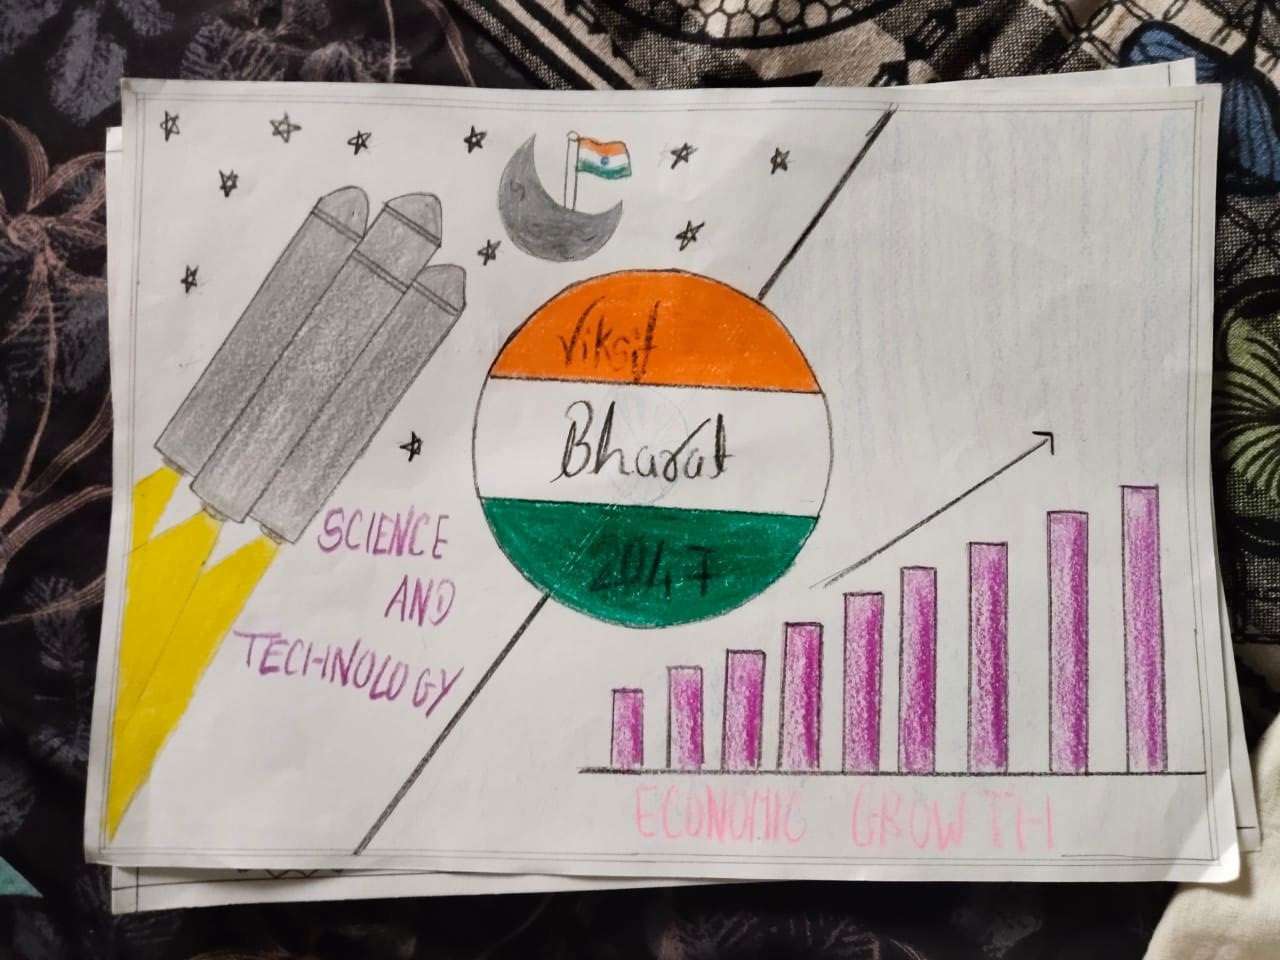 Viksit
Bharat
2047
SCIENCE
AND
TECHNOLOGY
ECONOMIC GROWTH